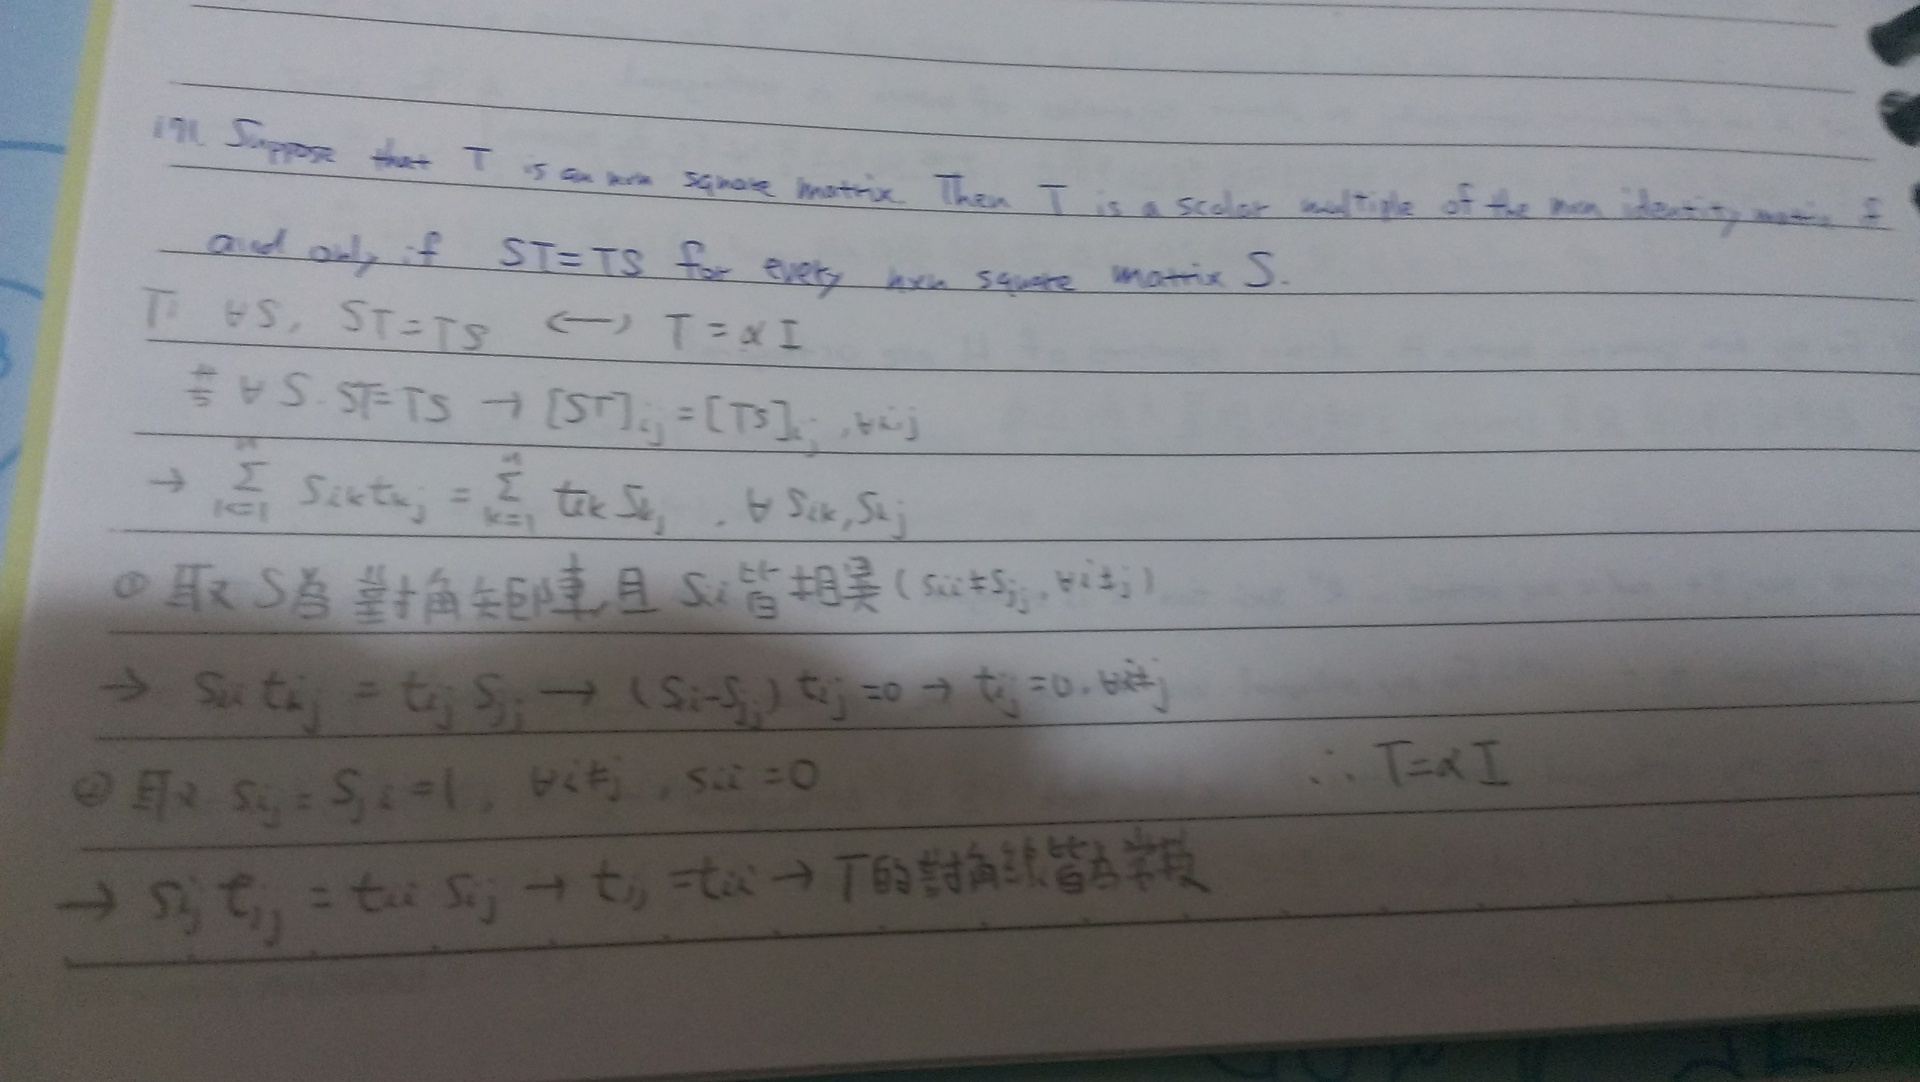 Suppose that T is an nxn square matrix. Then T is a scalar multiple of the nxn identity matrix if
and only if ST=TS for every nxn square matrix S.
T: ∀S, ST=TS ↔ T=αI
∀S. ST=TS → [ST]ij=[TS]ij, ∀i,j
→ Σ_{k=1}^{n} Sik tkj = Σ_{k=1}^{n} tik Skj, ∀ Sik, Skj
① 取 S為 對角矩陣,且 Sii皆相異 (Sii≠Sjj, ∀i≠j)
→ Sii tij = tij Sjj → (Si-Sjj) tij=0 → tij=0, ∀i≠j
② 取 Sij=Sji=1, ∀i≠j, Sii=0 ∴ T=αI
→ Sij tjj = tii Sij → tjj=tii → T的對角線皆為常數